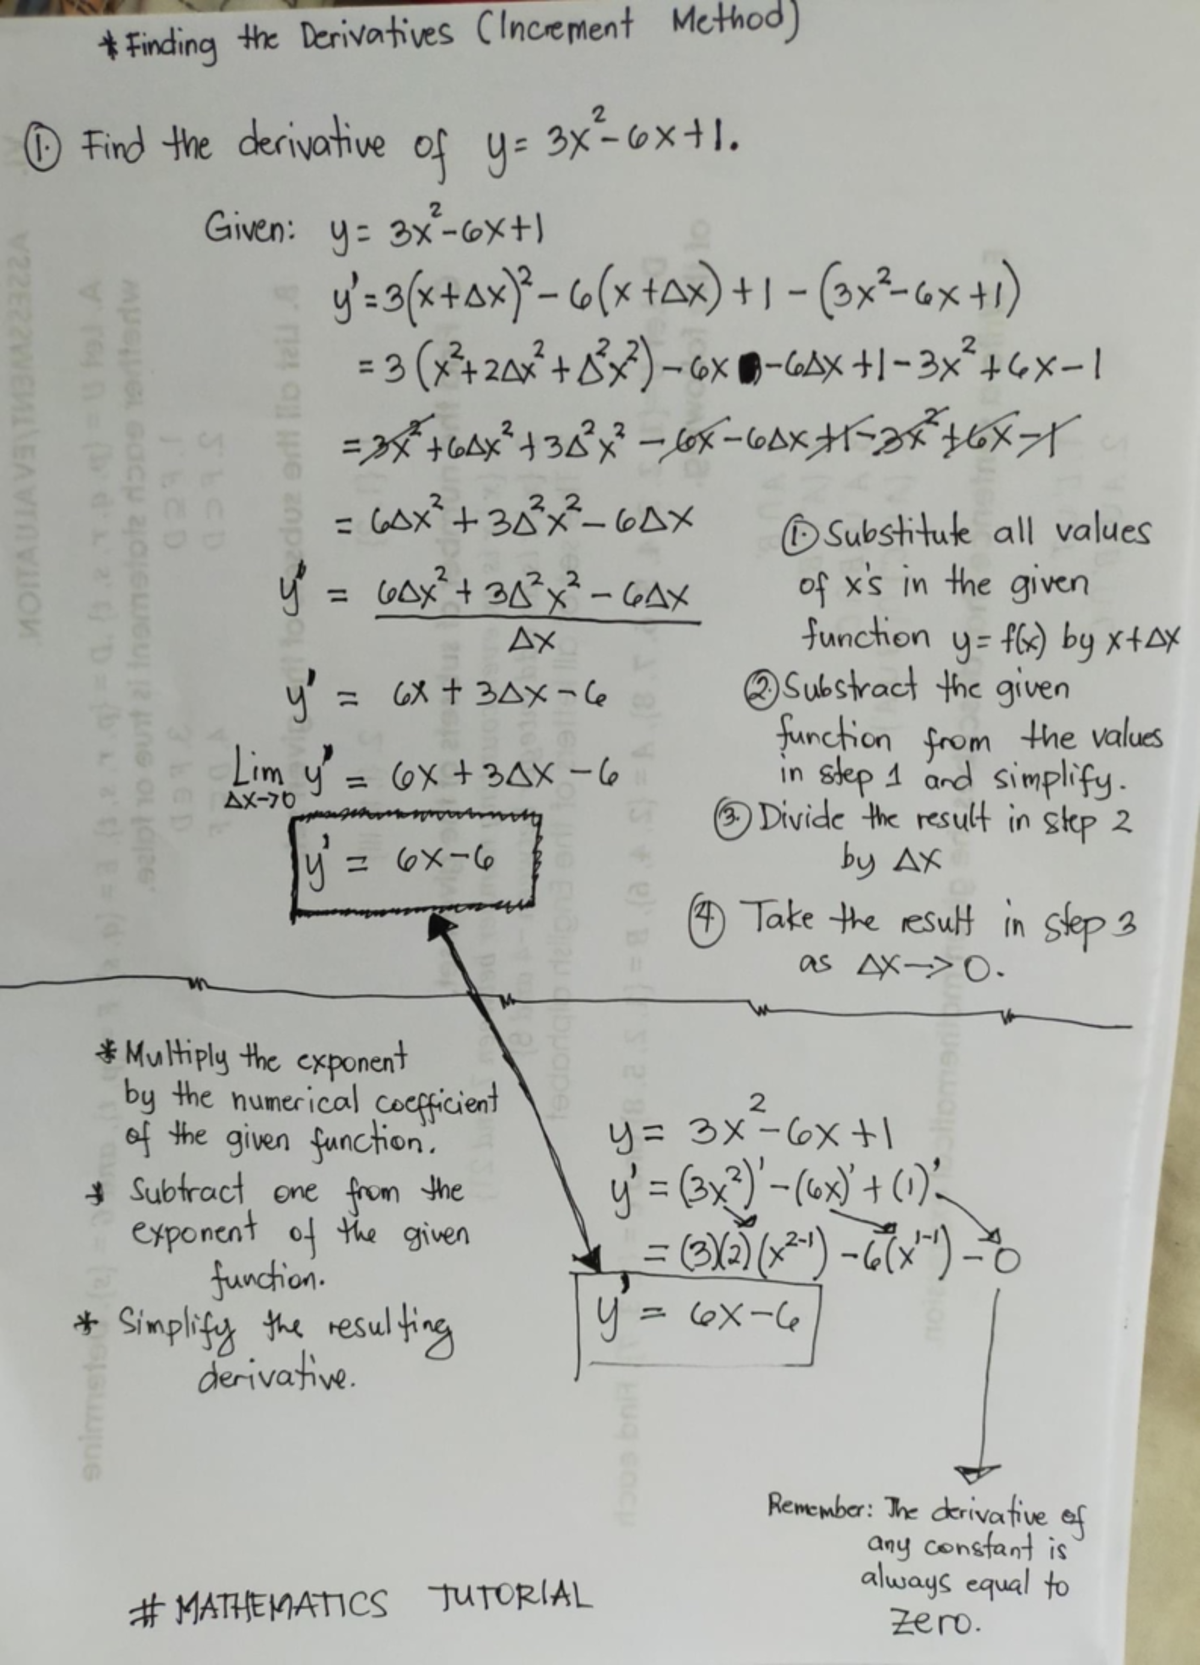 * Finding the Derivatives (Increment Method)
① Find the derivative of y = 3x² - 6x + 1.
Given: y = 3x² - 6x + 1
y' = 3(x + Δx)² - 6(x + Δx) + 1 - (3x² - 6x + 1)
= 3(x² + 2Δx² + Δ²x²) - 6x - 6Δx + 1 - 3x² + 6x - 1
= 3x² + 6Δx² + 3Δ²x² - 6x - 6Δx + 1 - 3x² + 6x - 1
= 6Δx² + 3Δ²x² - 6Δx
y' = 6Δx² + 3Δ²x² - 6Δx
Δx
y' = 6x + 3Δx - 6
Lim y' = 6x + 3Δx - 6
Δx→0
y' = 6x - 6
① Substitute all values
of x's in the given
function y = f(x) by x + Δx
② Substract the given
function from the values
in step 1 and simplify.
③ Divide the result in step 2
by Δx
④ Take the result in step 3
as Δx → 0.
* Multiply the exponent
by the numerical coefficient
of the given function.
* Subtract one from the
exponent of the given
function.
* Simplify the resulting
derivative.
y = 3x² - 6x + 1
y' = (3x²)' - (6x)' + (1)'
= (3)(2)(x²⁻¹) - 6(x¹⁻¹) - 0
y' = 6x - 6
Remember: The derivative of
any constant is
always equal to
zero.
# MATHEMATICS TUTORIAL